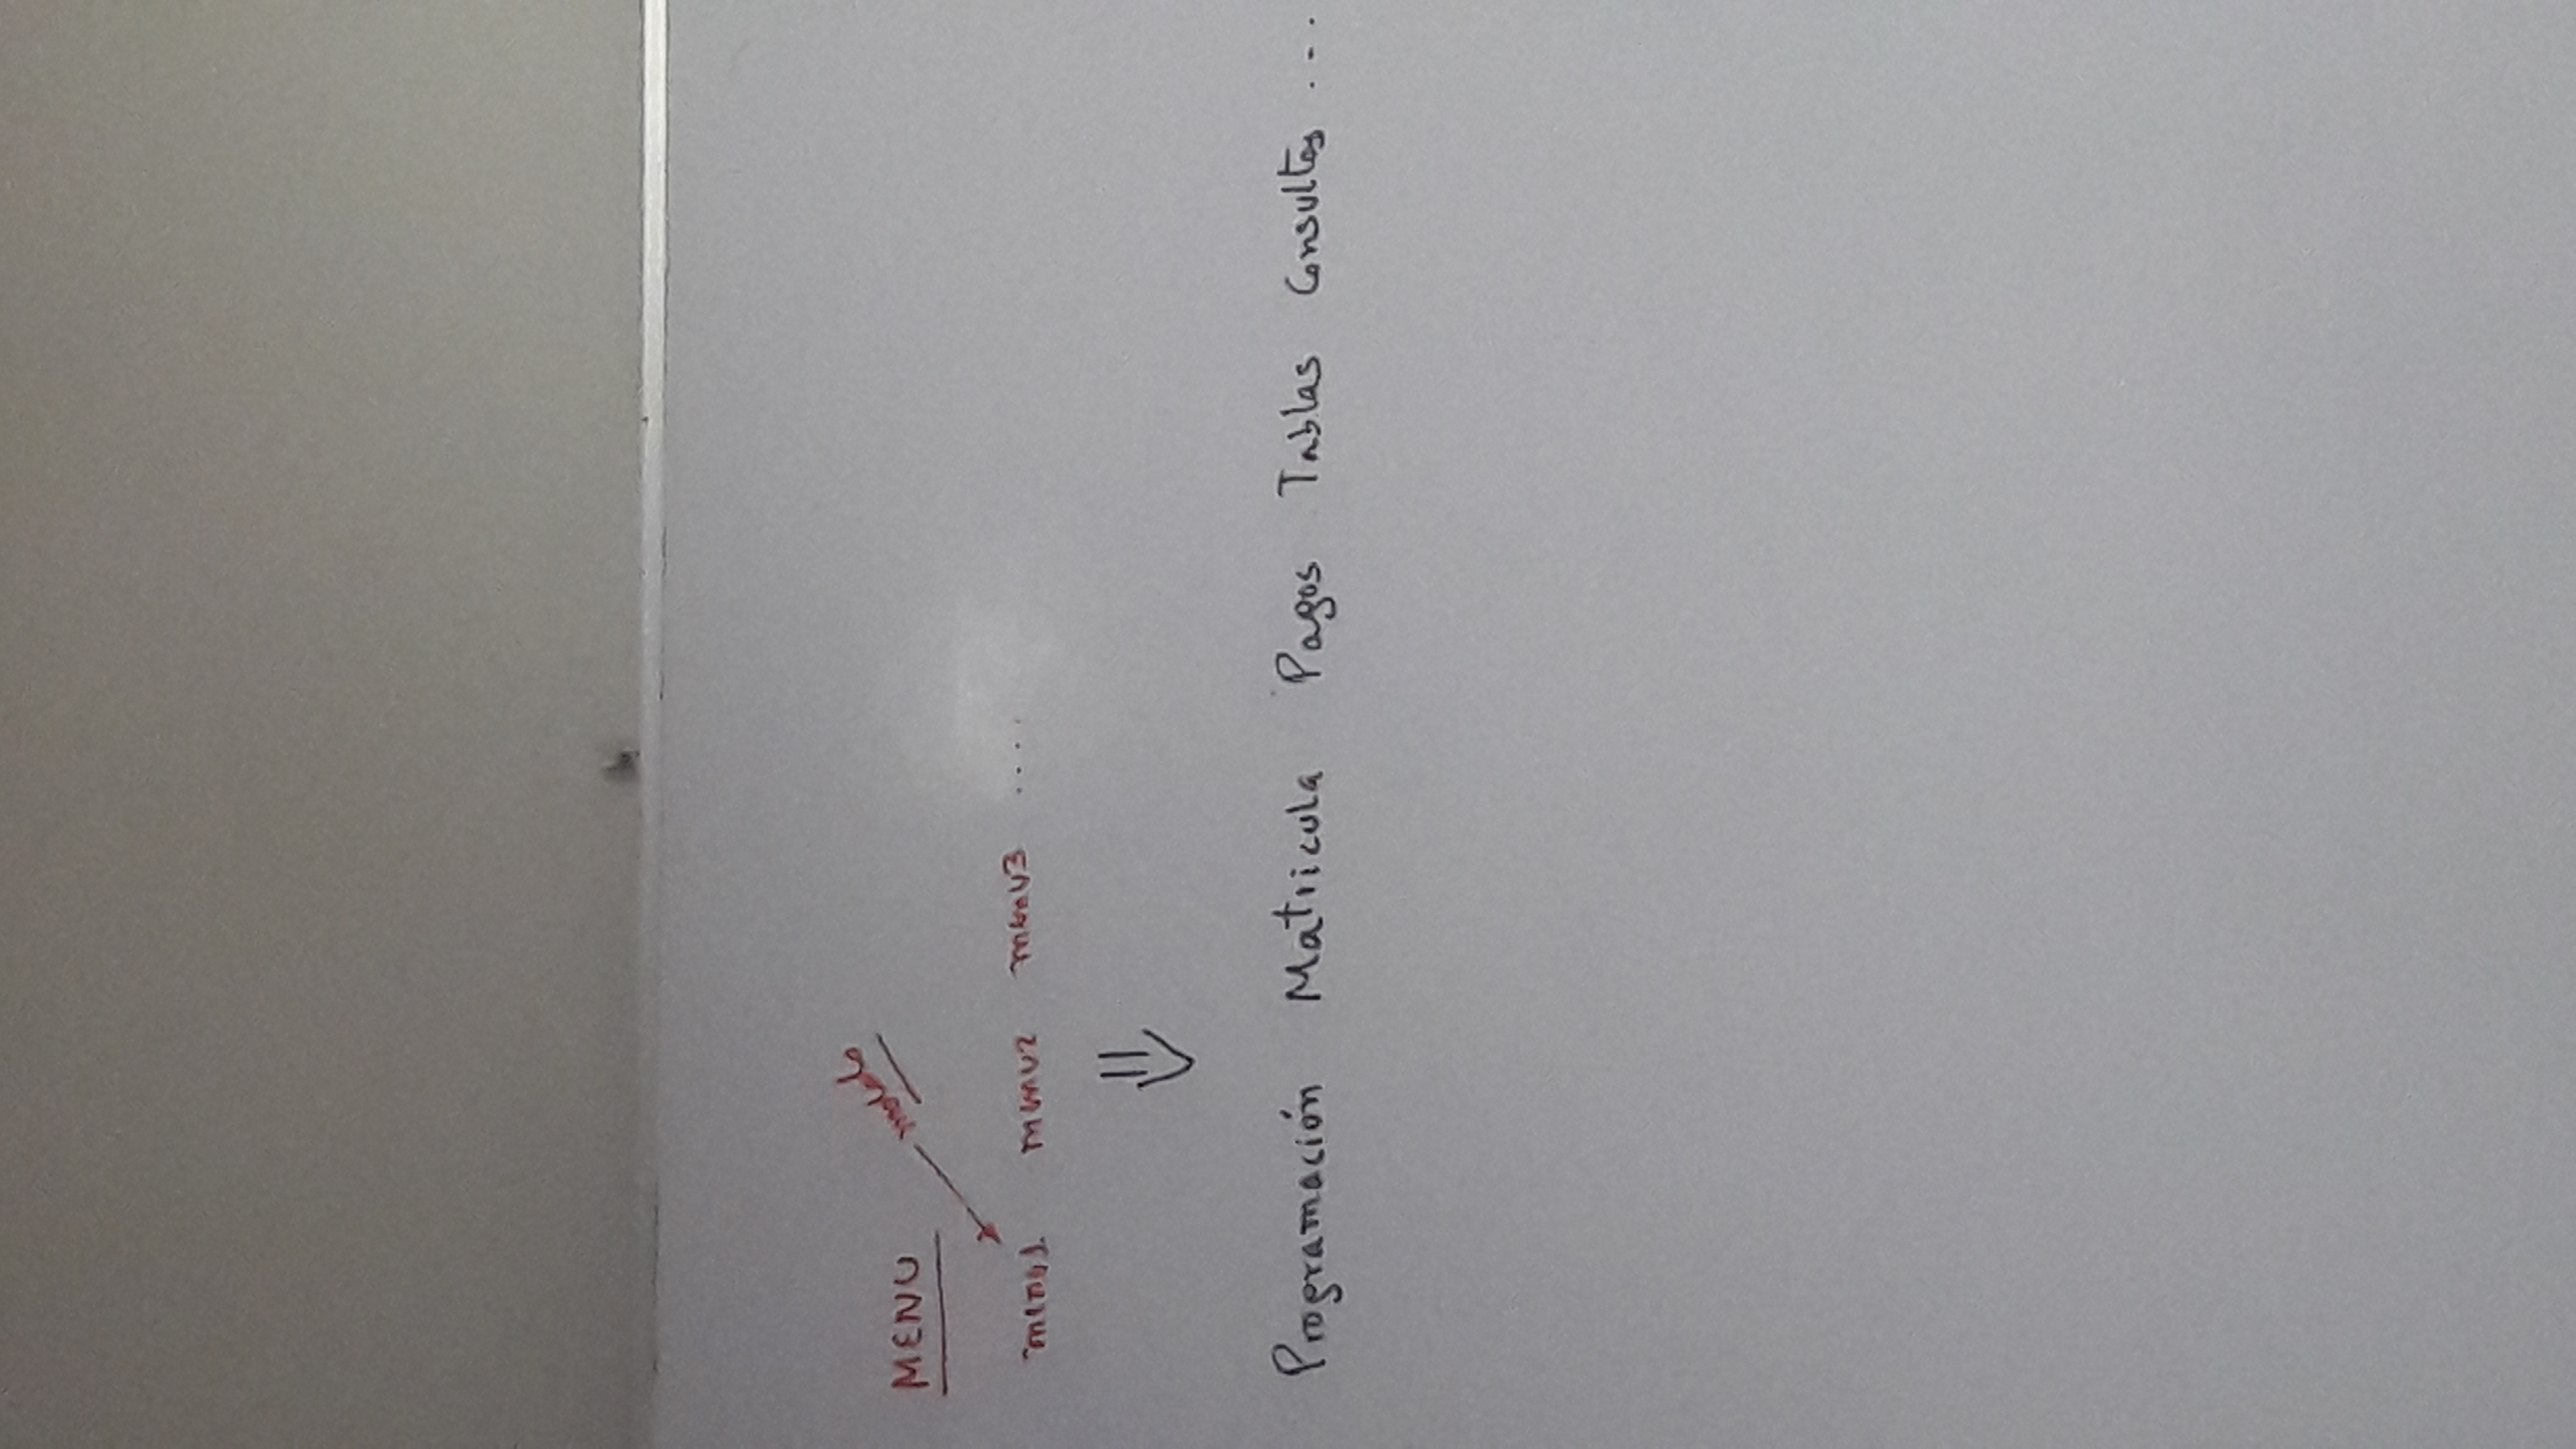 modelo
MENU
menu1 menu2 menu3 ....
Programación Matricula Pagos Tablas Consultas ...